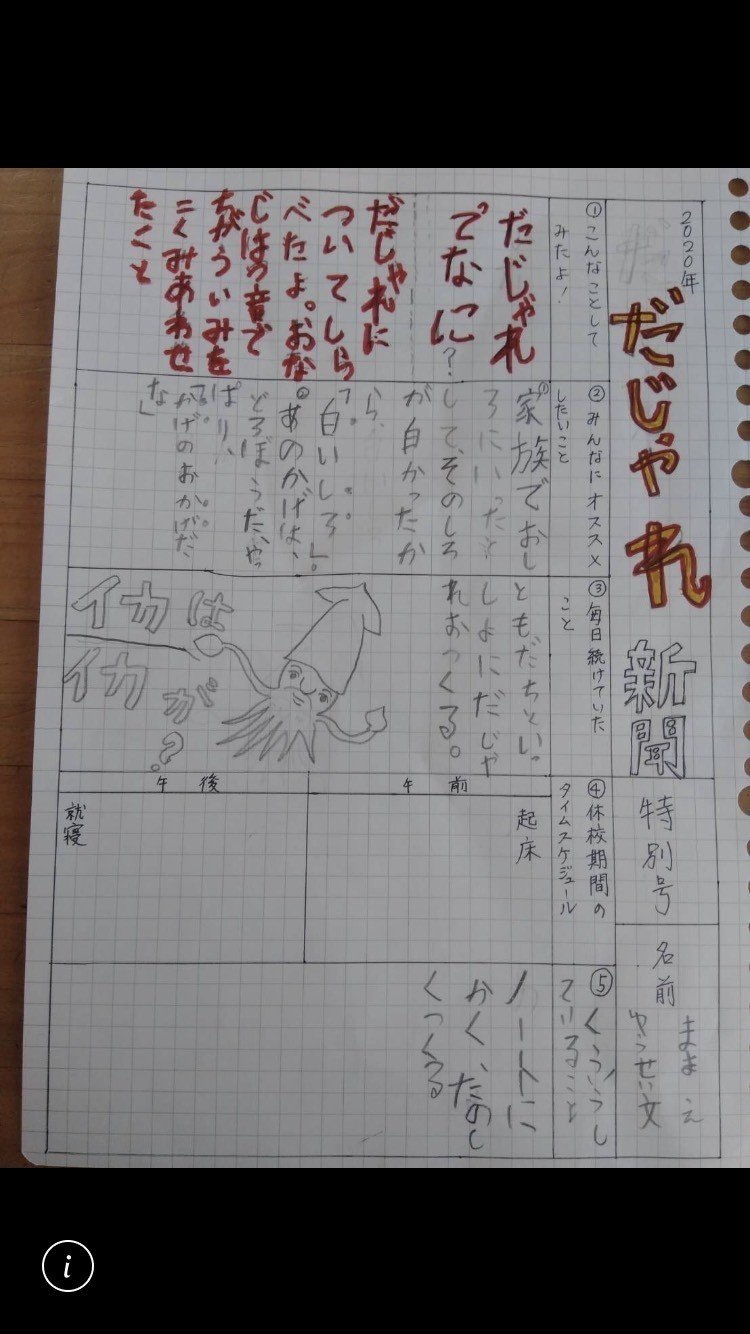 2020年
だじゃれ
新聞
特別号
名前
まえ
①こんなことして
みたよ!
だじゃれ
でなに?
だじゃれに
ついてしら
べたよ。おな
じはつ音で
ちがういみを
くみあわせ
たこと
②みんなにオススメ
したいこと
家族でおし
ろにいったと
して、そのしろ
が白かったか
ら、
「白いしろ」。
あのかげは、
どろぼうだ、やっ
ぱり、
かげのおかげだ
な」
③毎日続けていた
こと
ともだちといっ
しょにだじゃ
れおつくる。
イカは
イカが
?
④休校期間の
タイムスケジュール
午前
起床
午後
就寝
⑤くふうし
ていること
ノートに
かく、たのし
くつくる
i